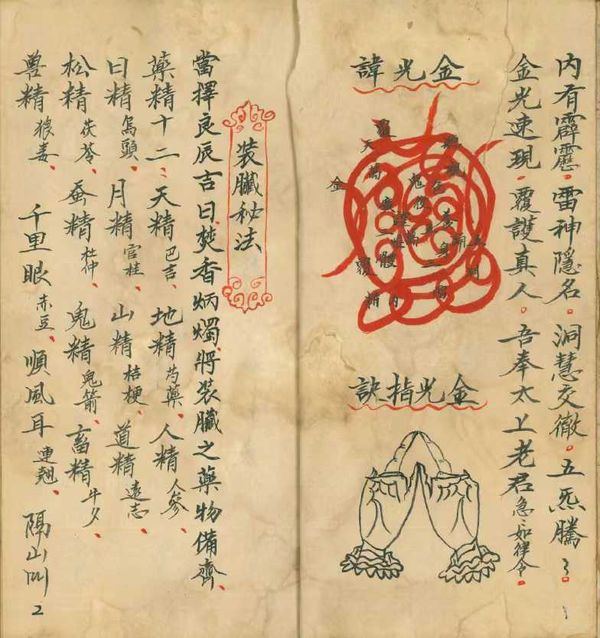 内有霹靂。雷神隱名。洞慧交徹。五炁騰〻。
金光速現。覆護真人。吾奉太上老君急〻如律令。
金光諱
金光指訣
1
裝臟秘法
當擇良辰吉日、焚香炳燭、將裝臟之藥物備齊、
藥精十二、天精巴吉、地精芍藥、人精人參、
日精烏頭、月精官桂、山精桔梗、道精遠志、
松精茯苓、蚕精杜仲、鬼精鬼箭、畜精牛夕、
兽精狼毒、千里眼赤豆、順風耳連翹、隔山叫
2